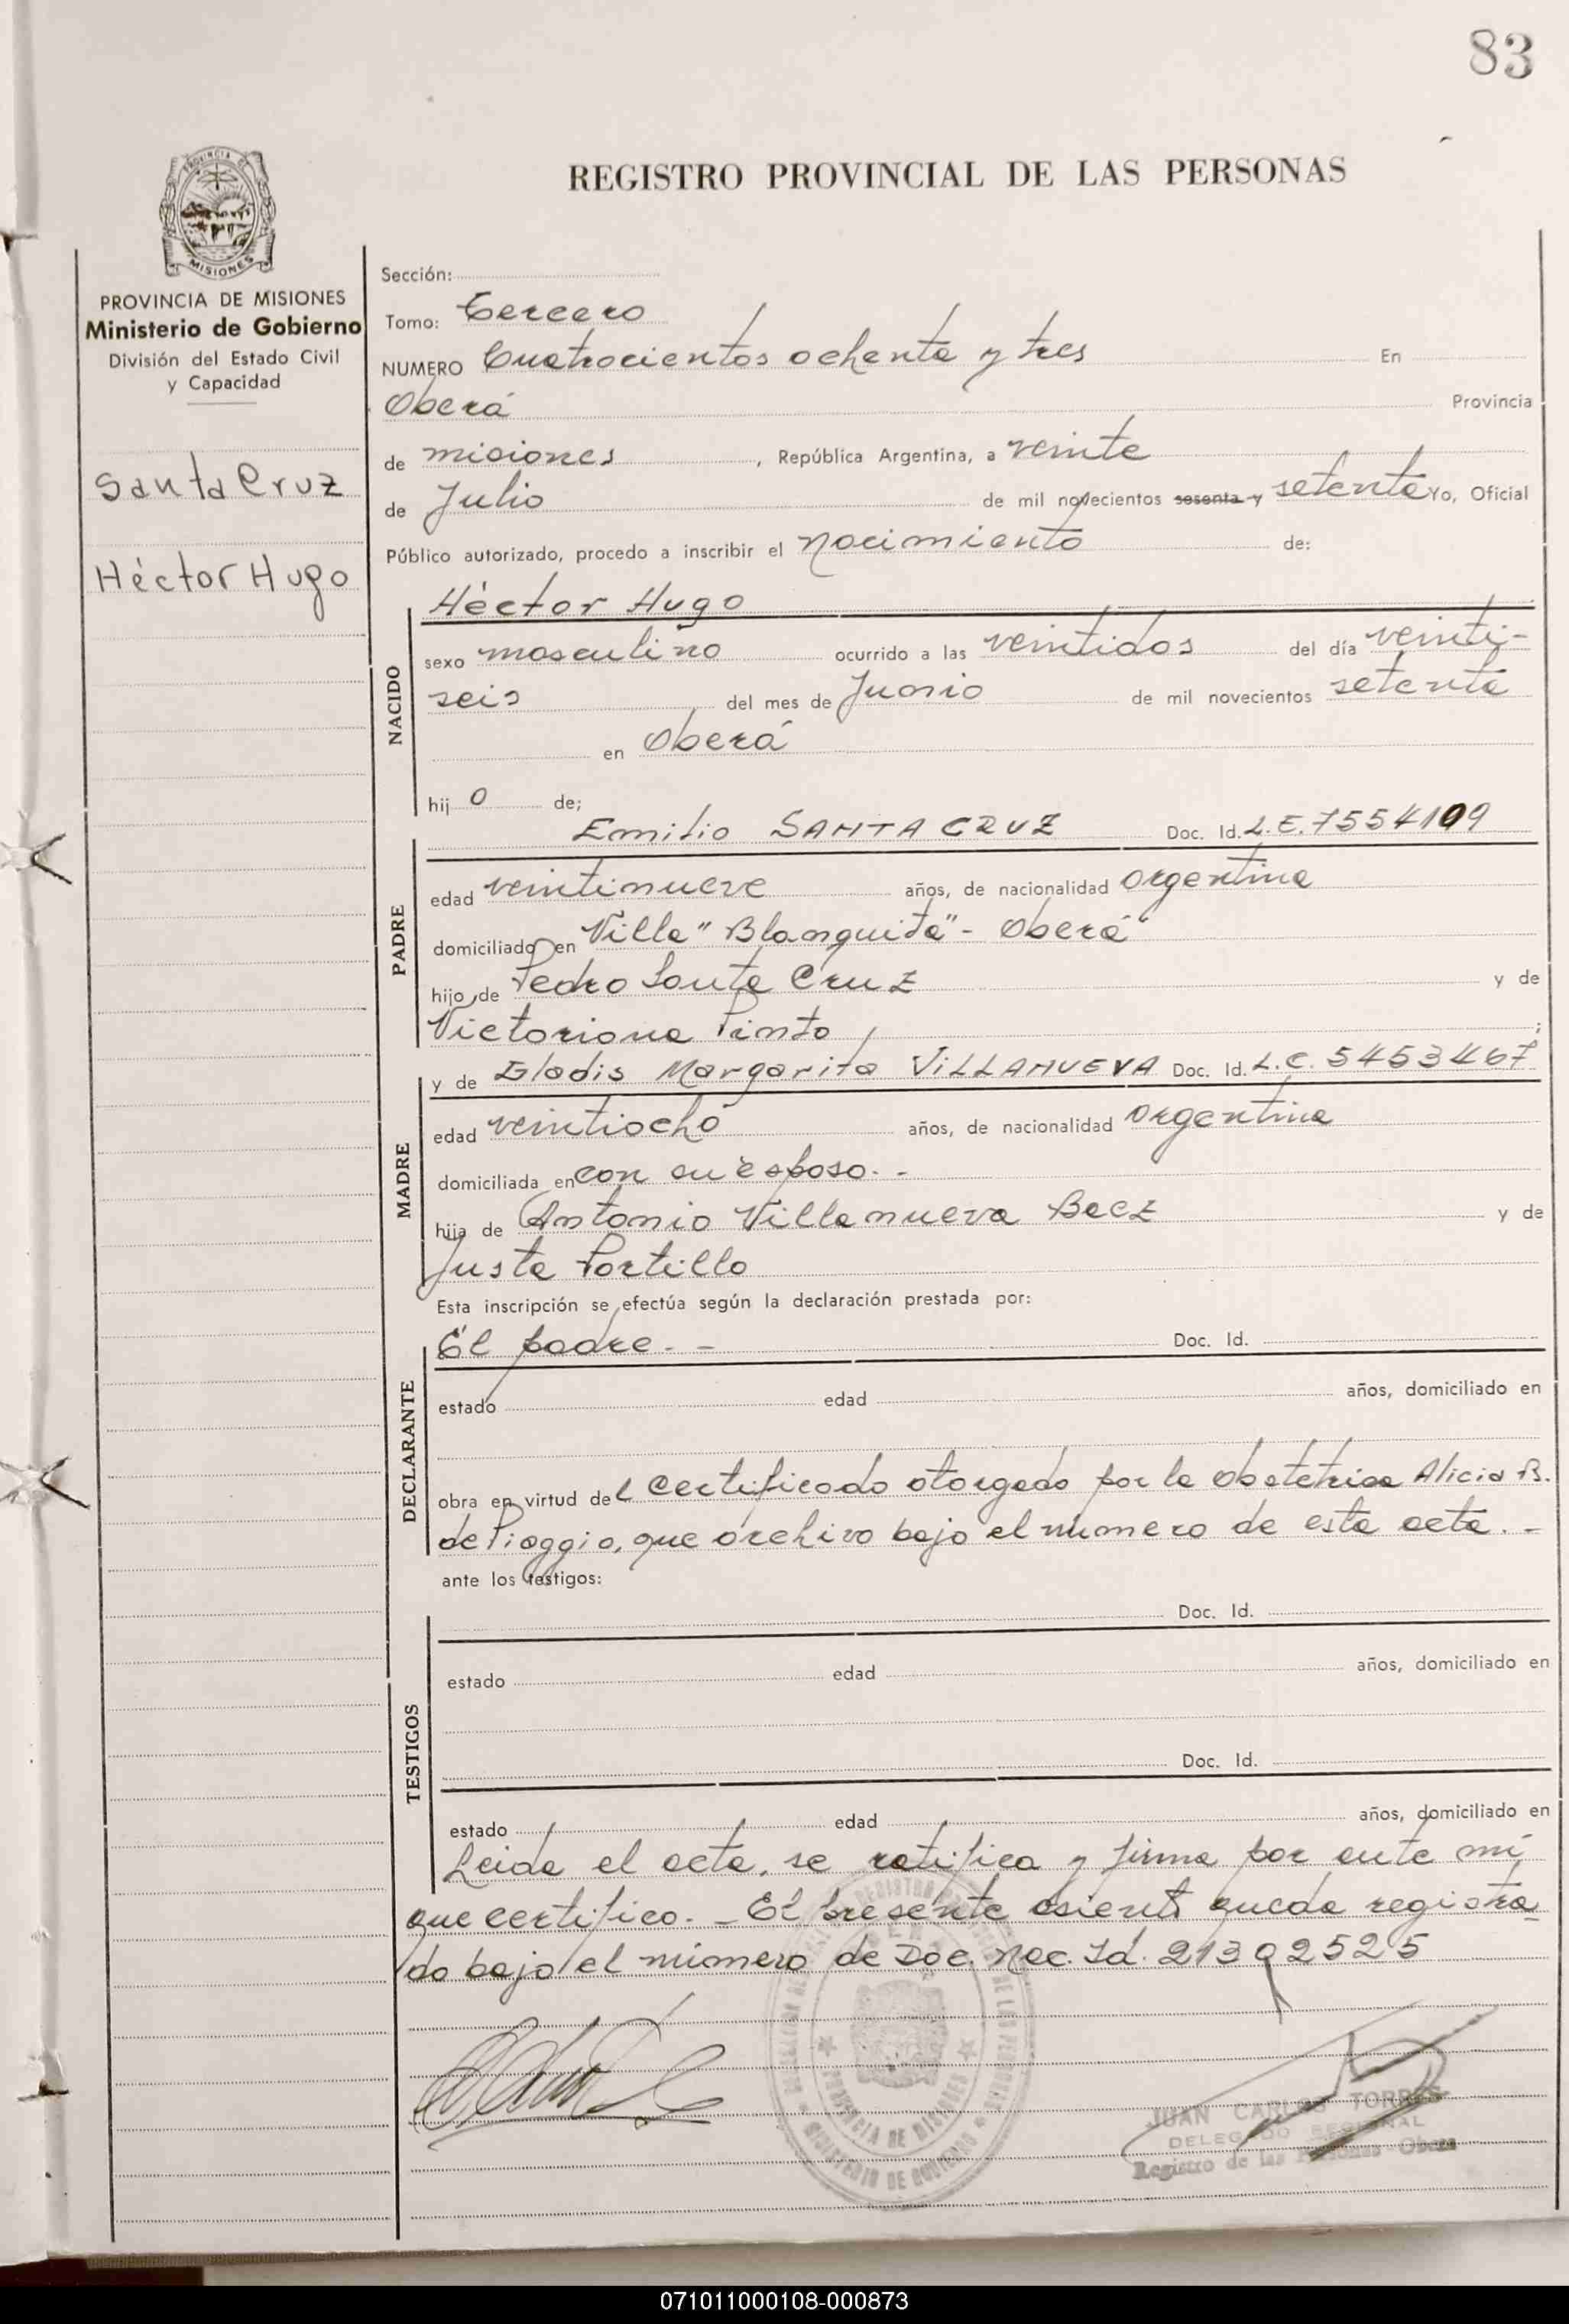 83
REGISTRO PROVINCIAL DE LAS PERSONAS
PROVINCIA DE
MISIONES
PROVINCIA DE MISIONES
Ministerio de Gobierno
División del Estado Civil
y Capacidad
Santa Cruz
Héctor Hugo
Sección:
Tomo: Tercero
NUMERO Cuatrocientos ochenta y tres En
Oberá Provincia
de misiones, República Argentina, a veinte
de Julio de mil novecientos sesenta y setenta Yo, Oficial
Público autorizado, procedo a inscribir el nacimiento de:
NACIDO
Héctor Hugo
sexo masculino ocurrido a las veintidos del día veinti-
seis del mes de Junio de mil novecientos setenta
en Oberá
hij o de;
PADRE
Emilio SANTA CRUZ Doc. Id. L.E. 7554109
edad veintinueve años, de nacionalidad argentina
domiciliado en Villa "Blanquita" - Oberá
hijo de Pedro Santa Cruz y de
Victoriana Pinto ;
MADRE
y de Gladis Margarita VILLANUEVA Doc. Id. L.C. 5453467
edad veintiocho años, de nacionalidad argentina
domiciliada en con su esposo. -
hija de Antonio Villanueva Baez y de
Justa Portillo
Esta inscripción se efectúa según la declaración prestada por:
DECLARANTE
El padre. - Doc. Id.
estado edad años, domiciliado en
obra en virtud del certificado otorgado por la obstetrica Alicia B.
de Piaggio, que archivo bajo el número de esta acta. -
ante los testigos:
TESTIGOS
Doc. Id.
estado edad años, domiciliado en
Doc. Id.
estado edad años, domiciliado en
Leida el acta, se ratifica y firma por ante mi
que certifico. - El presente asiento queda registra-
do bajo el número de Doc. Nac. Id. 21302525
PROVINCIA DE MISIONES
MINISTERIO DE GOBIERNO
JUAN CARLOS TORRES
DELEGADO REGIONAL
Registro de las Personas - Oberá
071011000108-000873